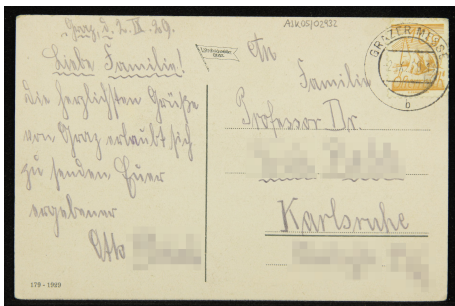 Graz, d. 2. IX. 29.
Liebe Familie!
Die herzlichsten Grüße
von Graz erlaubt sich
zu senden Euer
ergebener
Otto
179 - 1929
ASK05/02932
An
Familie
Professor Dr.
Karlsruhe
GRAZER MESSE
b